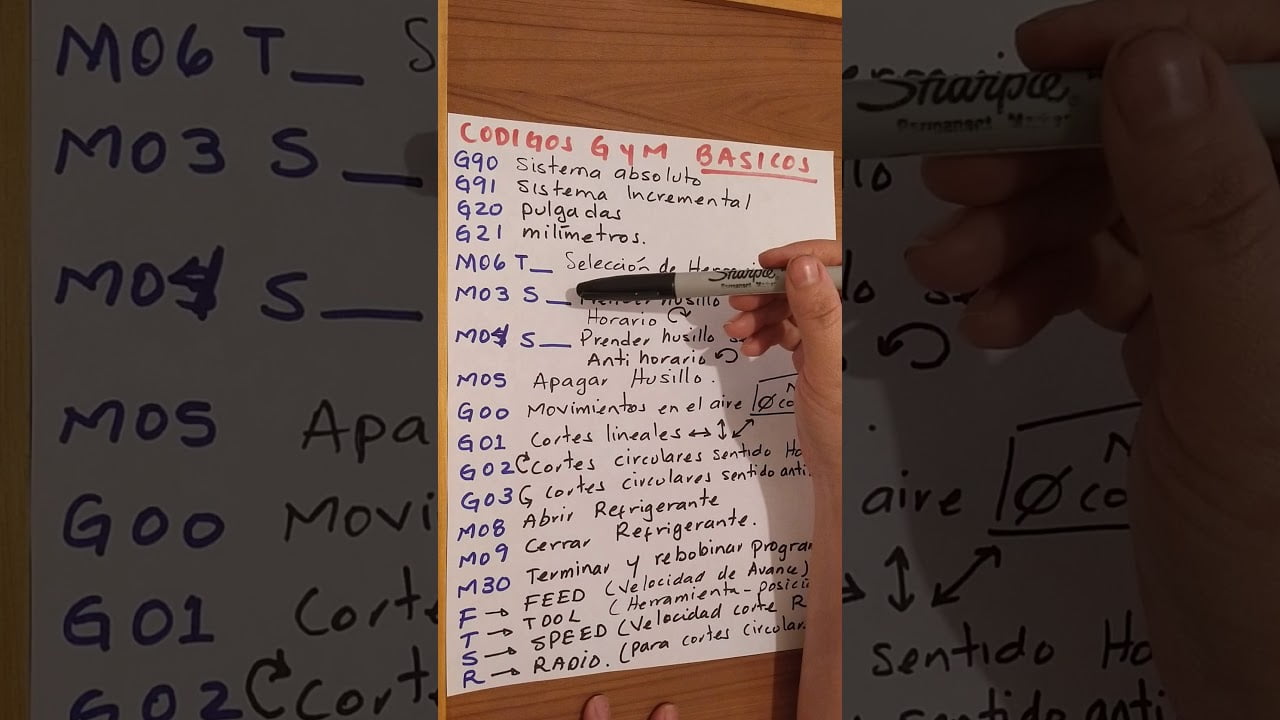 CODIGOS G y M BASICOS
G90 Sistema absoluto
G91 Sistema Incremental
G20 pulgadas
G21 milímetros.
M06 T_ Selección de
M03 S_ Prender husillo
Horario
M04 S_ Prender husillo
Anti horario
M05 Apagar Husillo.
G00 Movimientos en el aire
G01 Cortes lineales ↔ ↕ ⤢
G02 Cortes circulares sentido Ho
G03 Cortes circulares sentido anti
M08 Abrir Refrigerante
M09 Cerrar Refrigerante.
M30 Terminar y rebobinar Program
F → FEED (Velocidad de Avance)
T → TOOL (Herramienta - posició
S → SPEED (Velocidad corte R
R → RADIO. (para cortes circular
Sharpie
M06 T_ S
M03 S_
M04 S_
M05 Apa
G00 Movi
G01 Corte
G02 Corte
Sharpie
Permanent Marker
aire
Ø co
sentido Ho
sentido anti